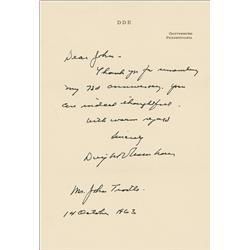 DDE
GETTYSBURG
PENNSYLVANIA
Dear John -
Thank you for
my 73d anniversary. you
are indeed thoughtful.
with warm regard
Sincerely
Dwight D Eisenhower
Mr. John
14 October 1963